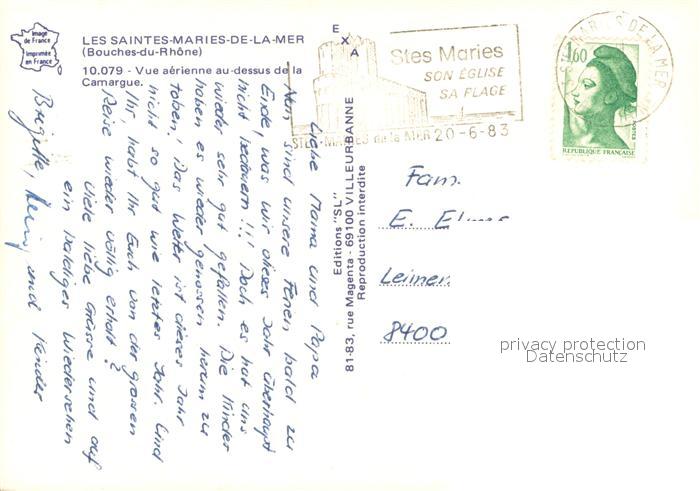 Image
de France
Imprimée
en France
LES SAINTES-MARIES-DE-LA-MER
(Bouches-du-Rhône)
10.079 - Vue aérienne au-dessus de la
Camargue.
EXA
Stes Maries
SON ÉGLISE
SA PLAGE
STES-MARIES de la MER 20-6-83
MARIES DE LA MER
1,60
POSTES
REPUBLIQUE FRANÇAISE
Editions "SL"
81-83, rue Magenta - 69100 VILLEURBANNE
Reproduction interdite
Liebe Mama und Papa
Nun sind unsere Ferien bald zu
Ende, was wir dieses Jahr überhaupt
nicht bedauern!!! Doch es hat uns
wieder sehr gut gefallen. Die Kinder
haben es wieder genossen herum zu
toben! Das Wetter ist dieses Jahr
nicht so gut wie letztes Jahr. Und
Ihr, habt Ihr Euch von der grossen
Reise wieder völlig erholt?
Viele liebe Grüsse und auf
ein baldiges Wiedersehen
Brigitte, und Kinder
Fam.
E.
Leimen
8400
privacy protection
Datenschutz